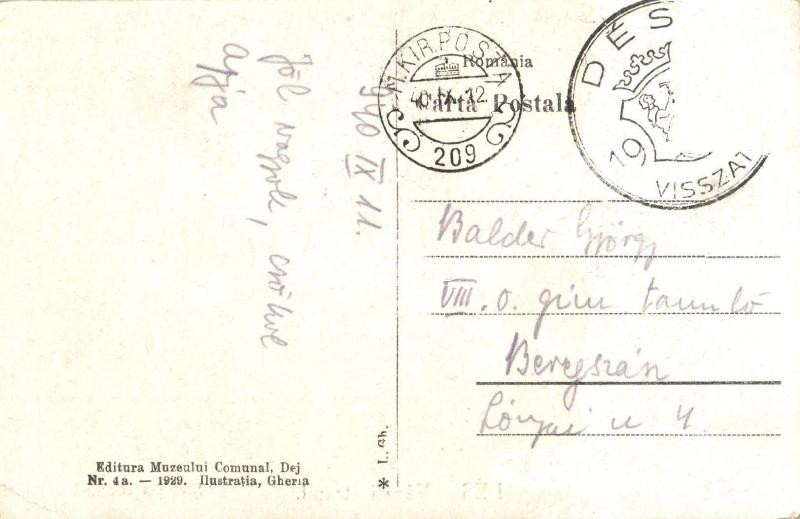 România
Carta Postală
M. KIR. POSTA
40 IX. 12.
209
DÉS
19
VISSZAT
940 IX 11.
Jól vagyok, csókol
apja
Balder György
VIII. o. gim tanuló
Beregszán
Lónyai u 4
Editura Muzeului Comunal, Dej
Nr. 4a. — 1929. Ilustrația, Gherla
* L. Gh.